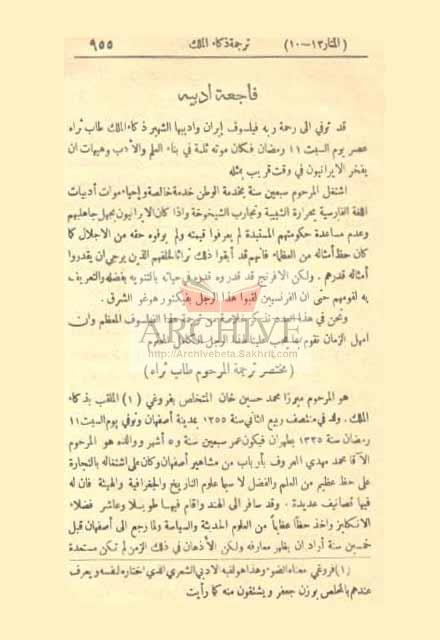 (المنار ١٣-١٠) ترجمة ذكاء الملك ٩٥٥
فاجعة أدبية
قد توفي الى رحمة ربه فيلسوف إيران واديبها الشهير ذكاء الملك طاب ثراه
عصر يوم السبت ١١ رمضان فكان موته ثلمة في بناء العلم والأدب وهيهات ان
يفخر الايرانيون في وقت قريب بمثله
اشتغل المرحوم سبعين سنة بخدمة الوطن خدمة خالصة وإحياء موات أدبيات
اللغة الفارسية بحرارة الشبيبة وتجارب الشيخوخة واذا كان الايرانيون بجهل جاهلهم
وعدم مساعدة حكومتهم المستبدة لم يعرفوا قيمته ولم يوفوه حقه من الاجلال كما
كان حظ أمثاله من العظماء فانهم قد أبقوا ذلك تراثا لخلفهم الذين يرجى ان يقدروا
أمثاله قدرهم. ولكن الافرنج قد قدروه قدره في حياته بالتنويه بفضله والتعريف
به لقومهم حتى ان الفرنسيين لقبوا هذا الرجل بفيكتور هوغو الشرق.
ونحن في هذا نذكر خلاصة من ترجمة هذا الفيلسوف المعظم وان
امهل الزمان نقوم بما يجب علينا لهذا الرجل
ARCHIVE
http://Archivebeta.Sakhrit.com
(مختصر ترجمة المرحوم طاب ثراه)
هو المرحوم ميرزا محمد حسين خان المتخلص بفروغي (١) الملقب بذكاء
الملك. ولد في منتصف ربيع الثاني سنة ١٢٥٥ بمدينة أصفهان وتوفي يوم السبت ١١
رمضان سنة ١٣٢٥ بطهران فيكون عمره سبعين سنة و٥ أشهر ووالده هو المرحوم
الآقا محمد مهدي المعروف بأرباب من مشاهير أصفهان وكان على اشتغاله بالتجارة
على حظ عظيم من العلم والفضل لا سيما علوم التاريخ والجغرافية والهيئة فان له
فيها تصانيف عديدة. وقد سافر الى الهند واقام فيها طويلا وعاشر فضلاء
الانكليز واخذ حظا عظيما من العلوم الحديثة والسياسة ولما رجع الى أصفهان قبل
خمسين سنة أراد ان يظهر معارفه ولكن الأذهان في ذلك الزمن لم تكن مستعدة
(١) فروغي معناه الضوء وهذا هو لقبه الادبي الشعري الذي اختاره لنفسه ويعرف
عندهم بالمخلص بوزن جعفر ويشتقون منه كما رأيت